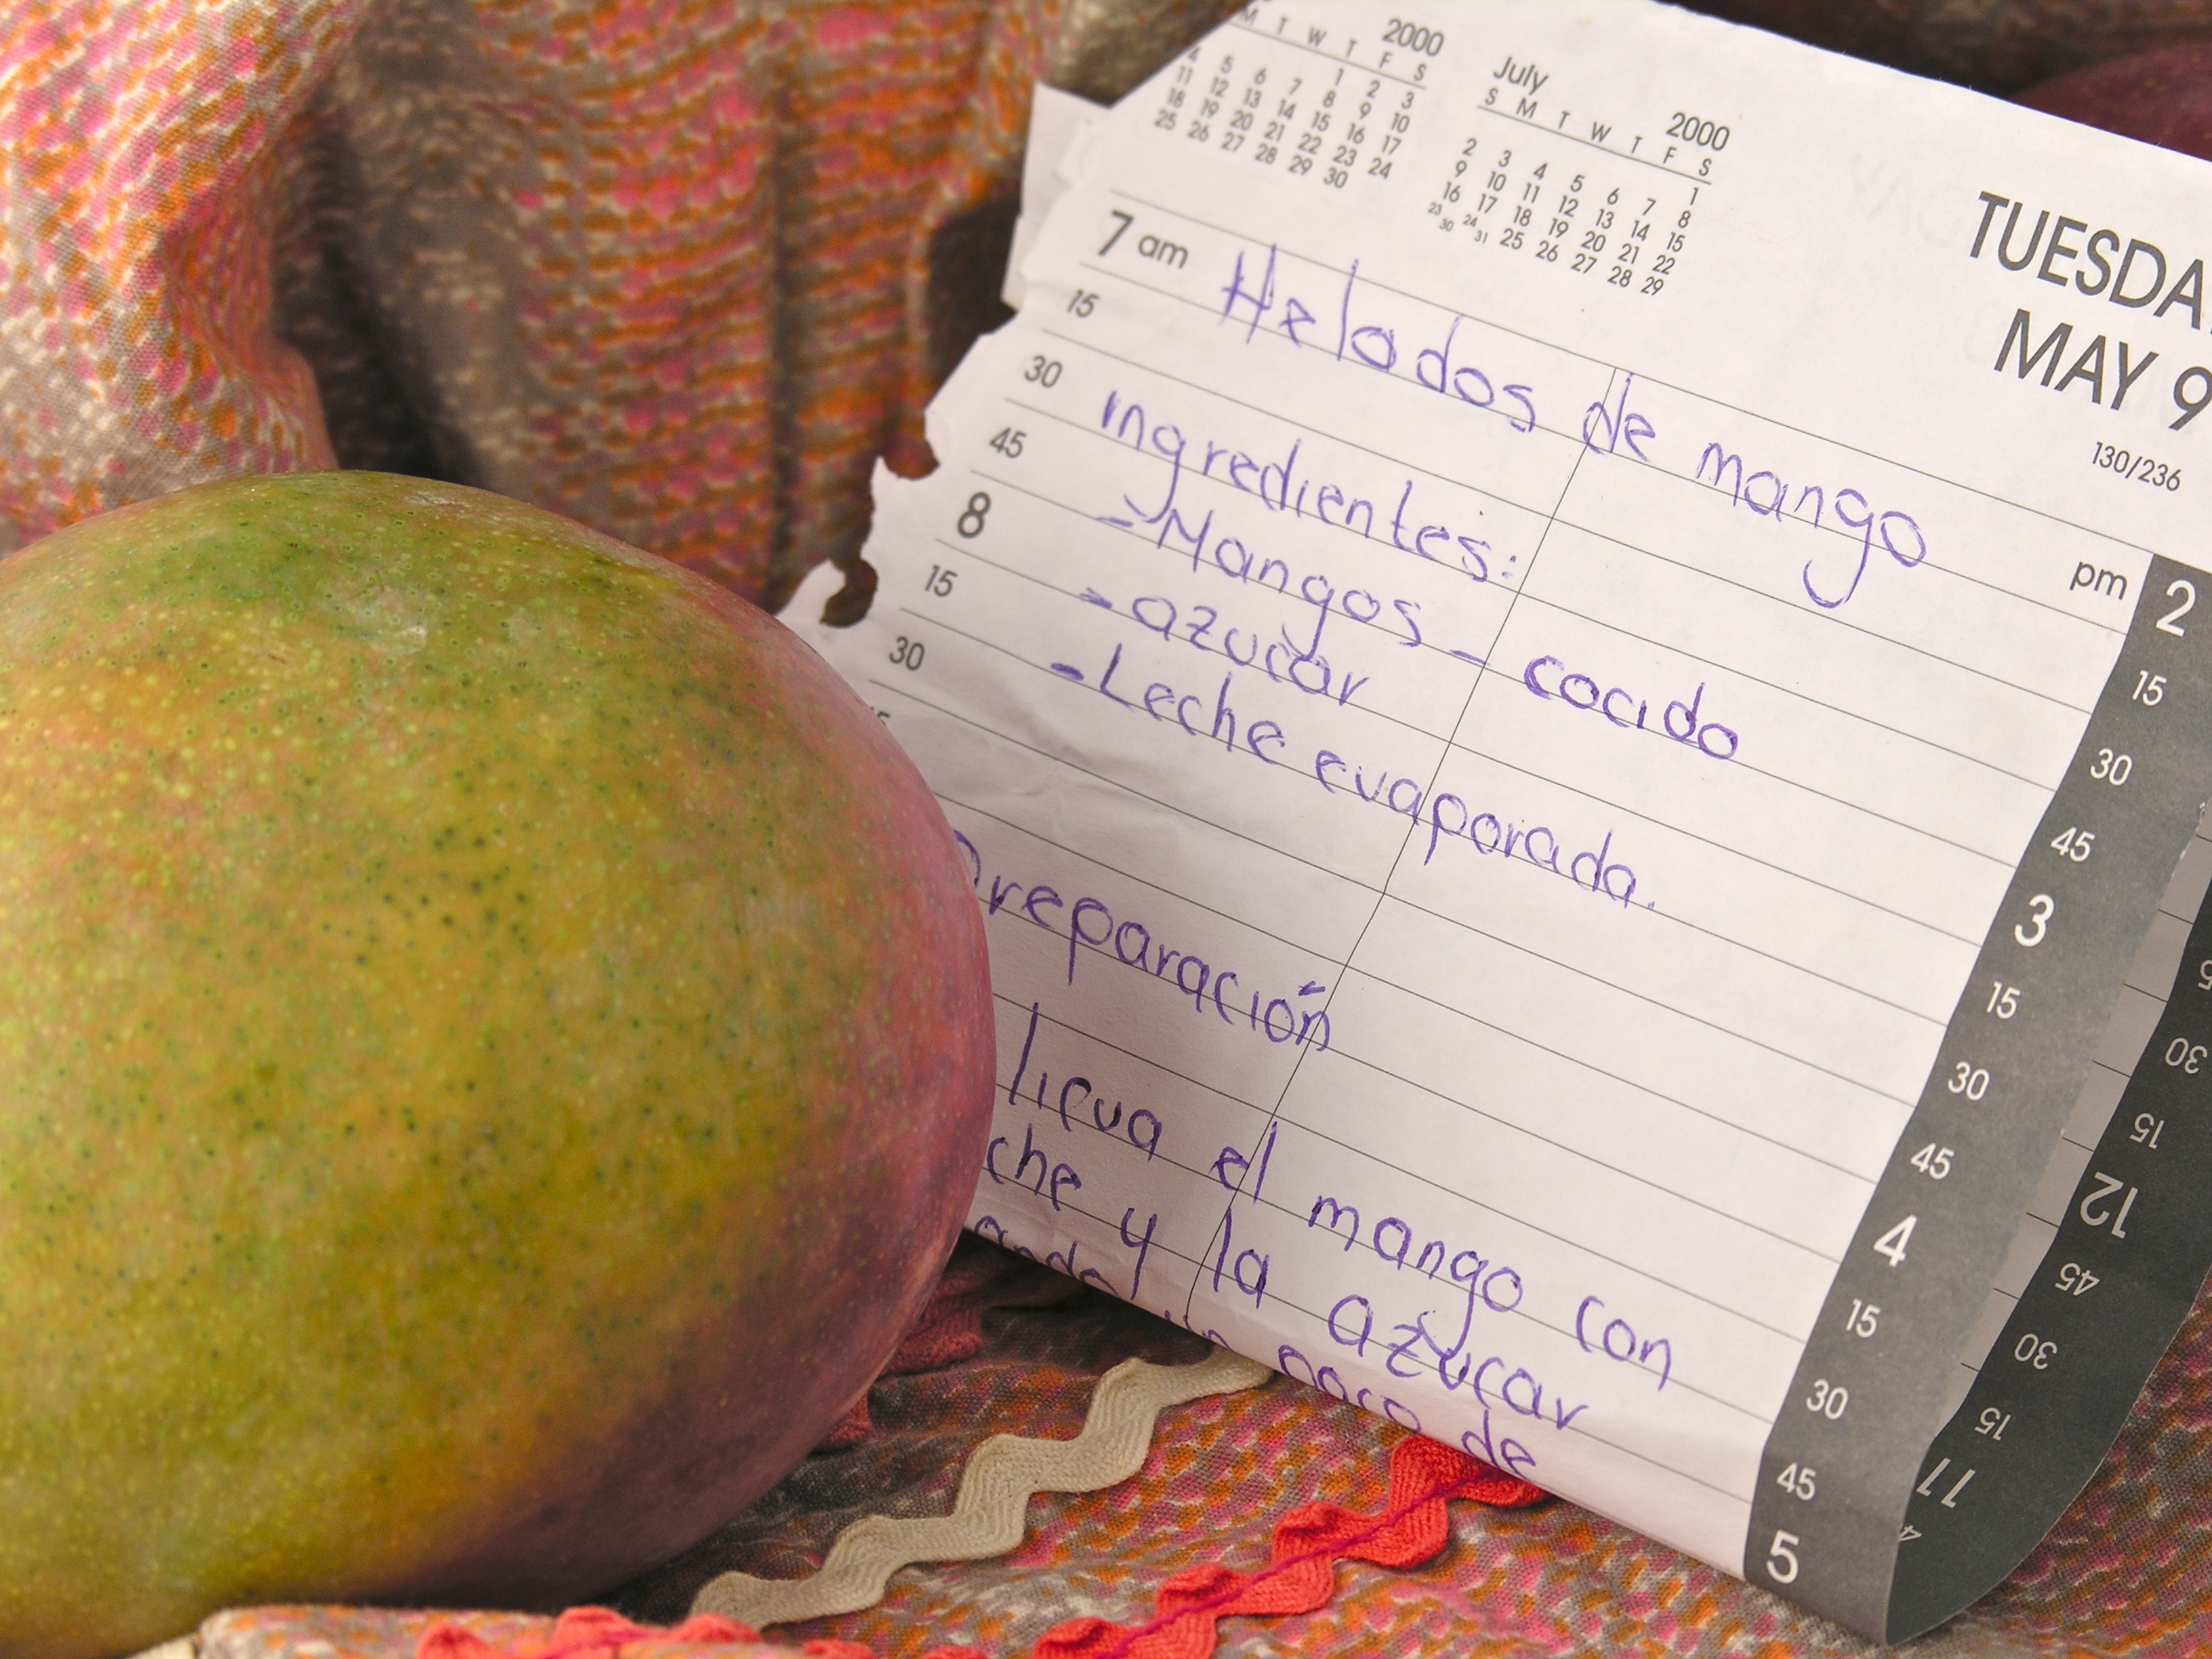 2000
M T W T F S
1 2 3
4 5 6 7 8 9 10
11 12 13 14 15 16 17
18 19 20 21 22 23 24
25 26 27 28 29 30
July 2000
S M T W T F S
1
2 3 4 5 6 7 8
9 10 11 12 13 14 15
16 17 18 19 20 21 22
23 24 25 26 27 28 29
30 31
TUESDA
MAY 9
130/236
7 am Helados de mango
15
30 ingredientes:
45 - Mangos - cocido
8 - azucar
15 - Leche evaporada.
30
reparación
licua el mango con
che y la azucar
poco de
pm 2
15
30
45
3
15
30
45
4
15
30
45
5
30
15
12
45
30
15
11